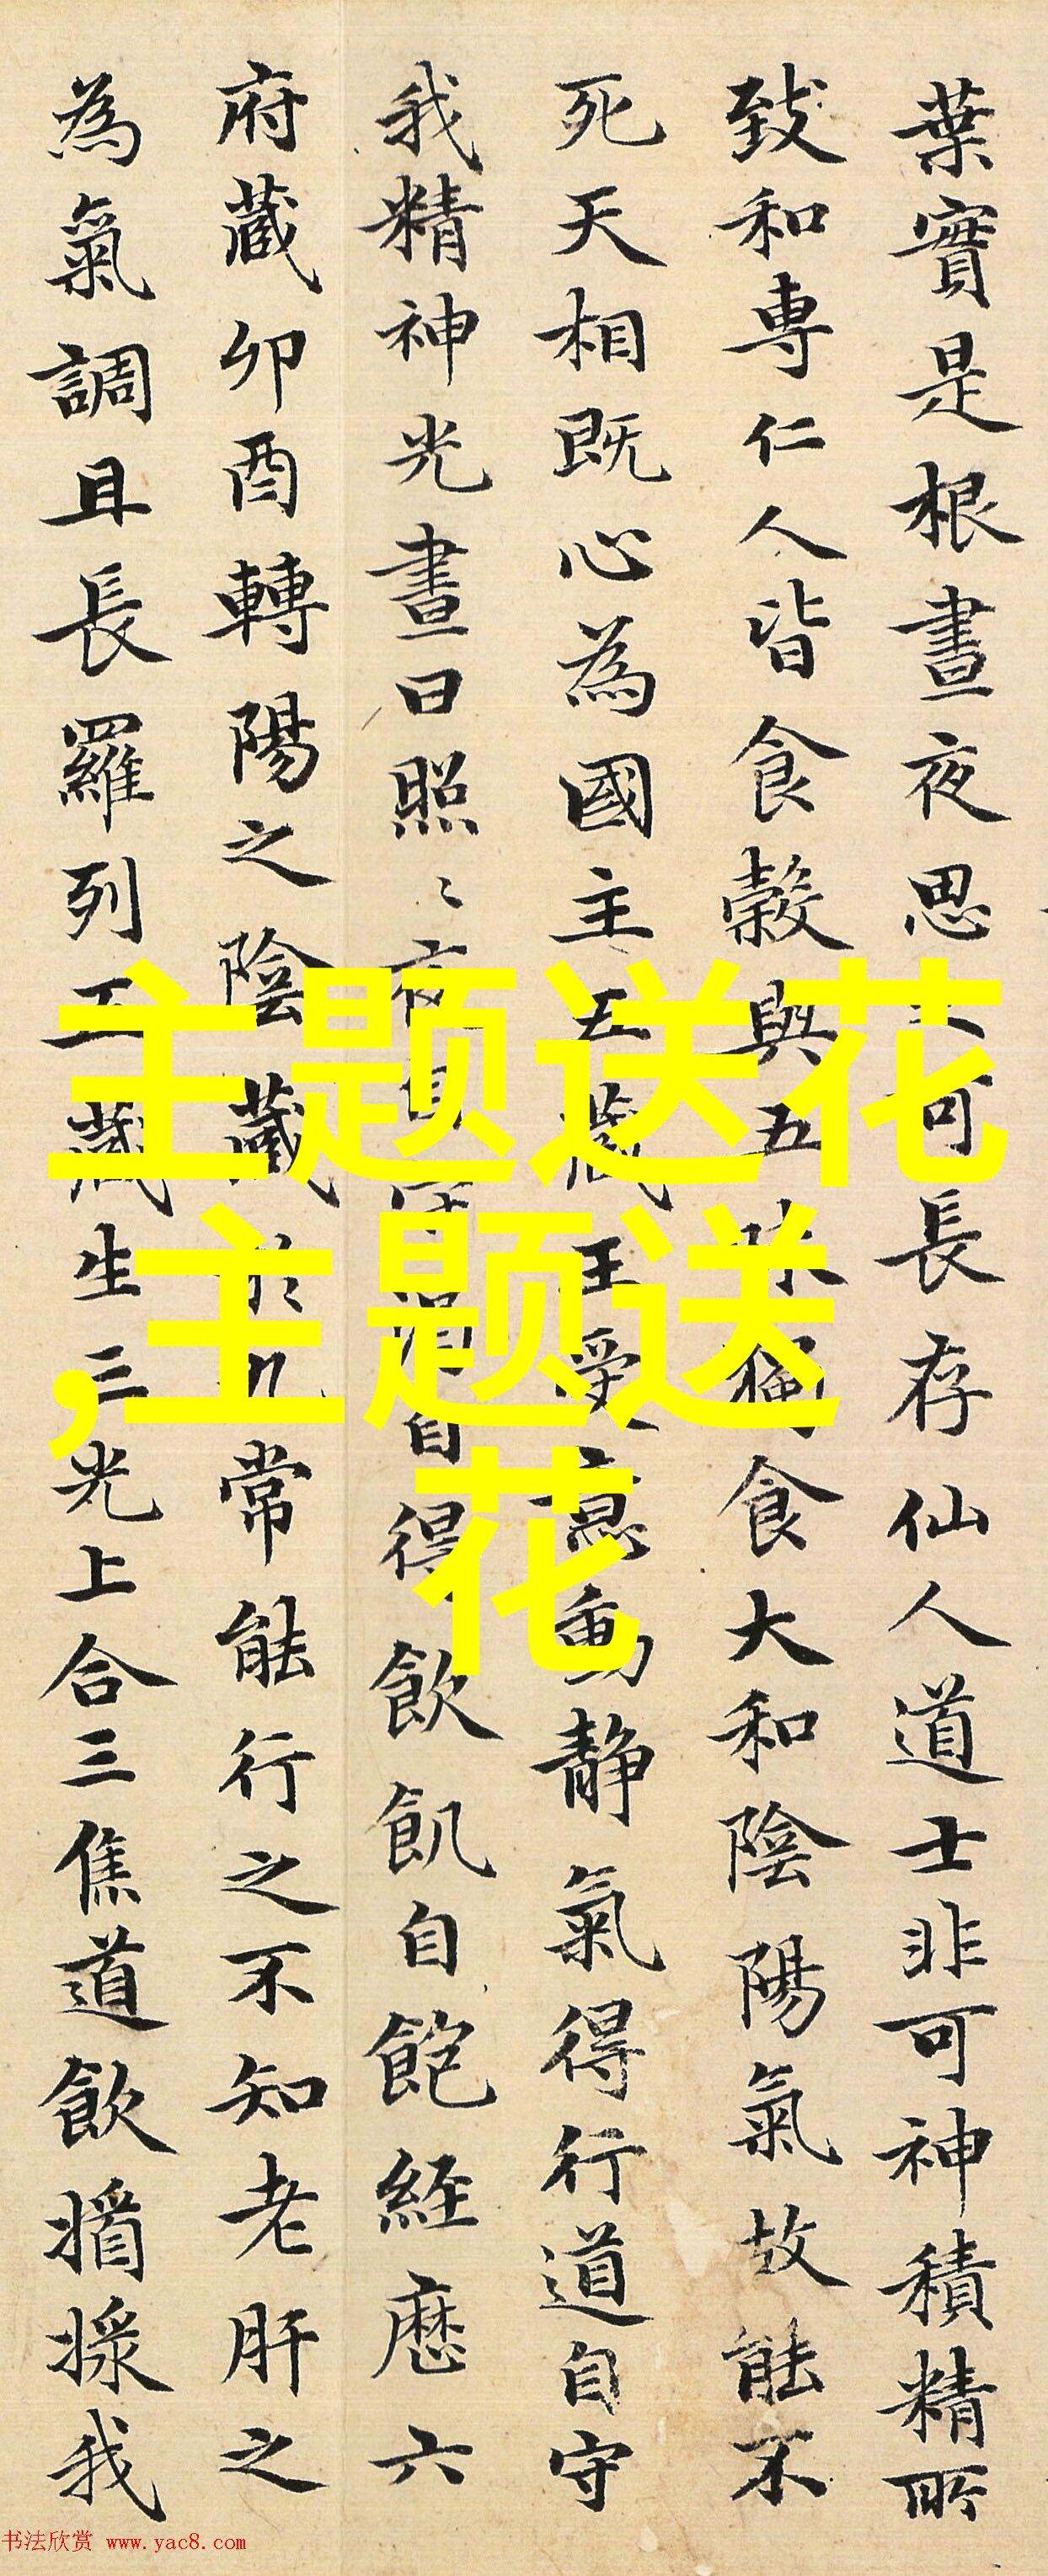 葉實是根晝夜思可長存仙人道士非可神積精所
致和專仁人皆食穀與五味獨食大和陰陽氣故能不
死天相既心為國主五藏王受意動静氣得行道自守
我精神光晝日照〻夜自得飲飢自飽經歷六
府藏卯酉轉陽之陰藏常能行之不知老肝之
為氣調且長羅列五藏生三光上合三焦道飲我
主题送花
,主题送
花
书法欣赏 www.yac8.com